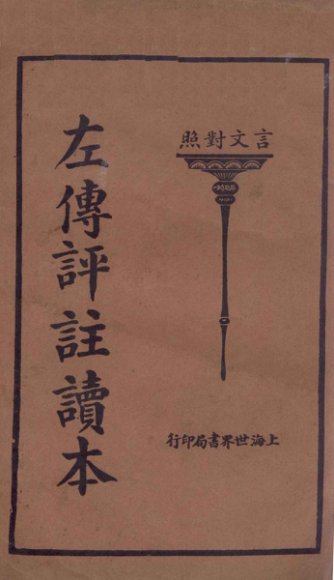 言文對照
左傳評註讀本
上海世界書局印行